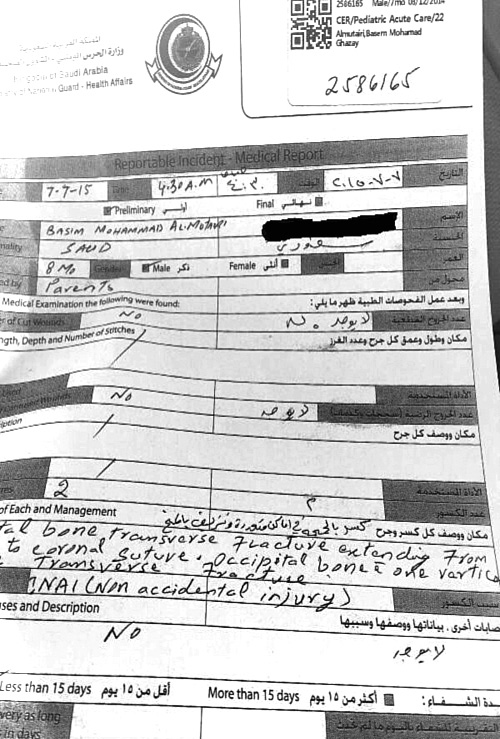 2586165 Male/7mo 08/12/2014
CER/Pediatric Acute Care/22
Almutairi,Basem Mohamad
Ghazay
2586165
وزارة الحرس الوطني - الشئون الصحية
Kingdom of Saudi Arabia
Ministry of National Guard - Health Affairs
Reportable Incident - Medical Report
7-7-15 Time 4:30 A.M ٤:٣٠ الوقت ٢٠١٥-٧-٧ التاريخ
Preliminary أولي Final نهائي
BASIM MOHAMMAD AL-MOTAIRI الاسم
nality SAUD سعودي الجنسية
8 MO Gender Male ذكر Female أنثى الجنس العمر
ed by Parents محول من
Medical Examination the following were found: وبعد عمل الفحوصات الطبية ظهر ما يلي:
er of Cut Wounds No لا يوجد عدد الجروح القطعية
ngth, Depth and Number of Stitches مكان وطول وعمق كل جرح وعدد الغرز
الأداة المستخدمة
No لا يوجد عدد الجروح الرضية
ription مكان ووصف كل جرح
الأداة المستخدمة
2 ٢ عدد الكسور
of Each and Management مكان ووصف كل كسر وجرح
tal bone transverse fracture extending from
to coronal suture. Occipital bone one vertic
Transverse fracture
NAI (Non accidental injury) سبب الكسور
uses and Description صابات أخرى، بياناتها ووصفها وسببها
No لا يوجد
Less than 15 days أقل من ١٥ يوم More than 15 days أكثر من ١٥ يوم دة الشفاء:
very as long
s in days